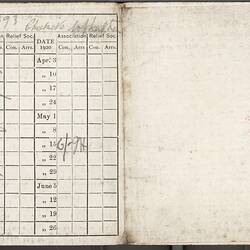 Relief Soc. DATE Association Relief Soc.
Con. Arrs. 1920 Con. Arrs. Con. Arrs.
Apr. 3
„ 10
„ 17
„ 24
May 1
„ 8
„ 15
„ 22
„ 29
June 5
„ 12
„ 19
„ 26